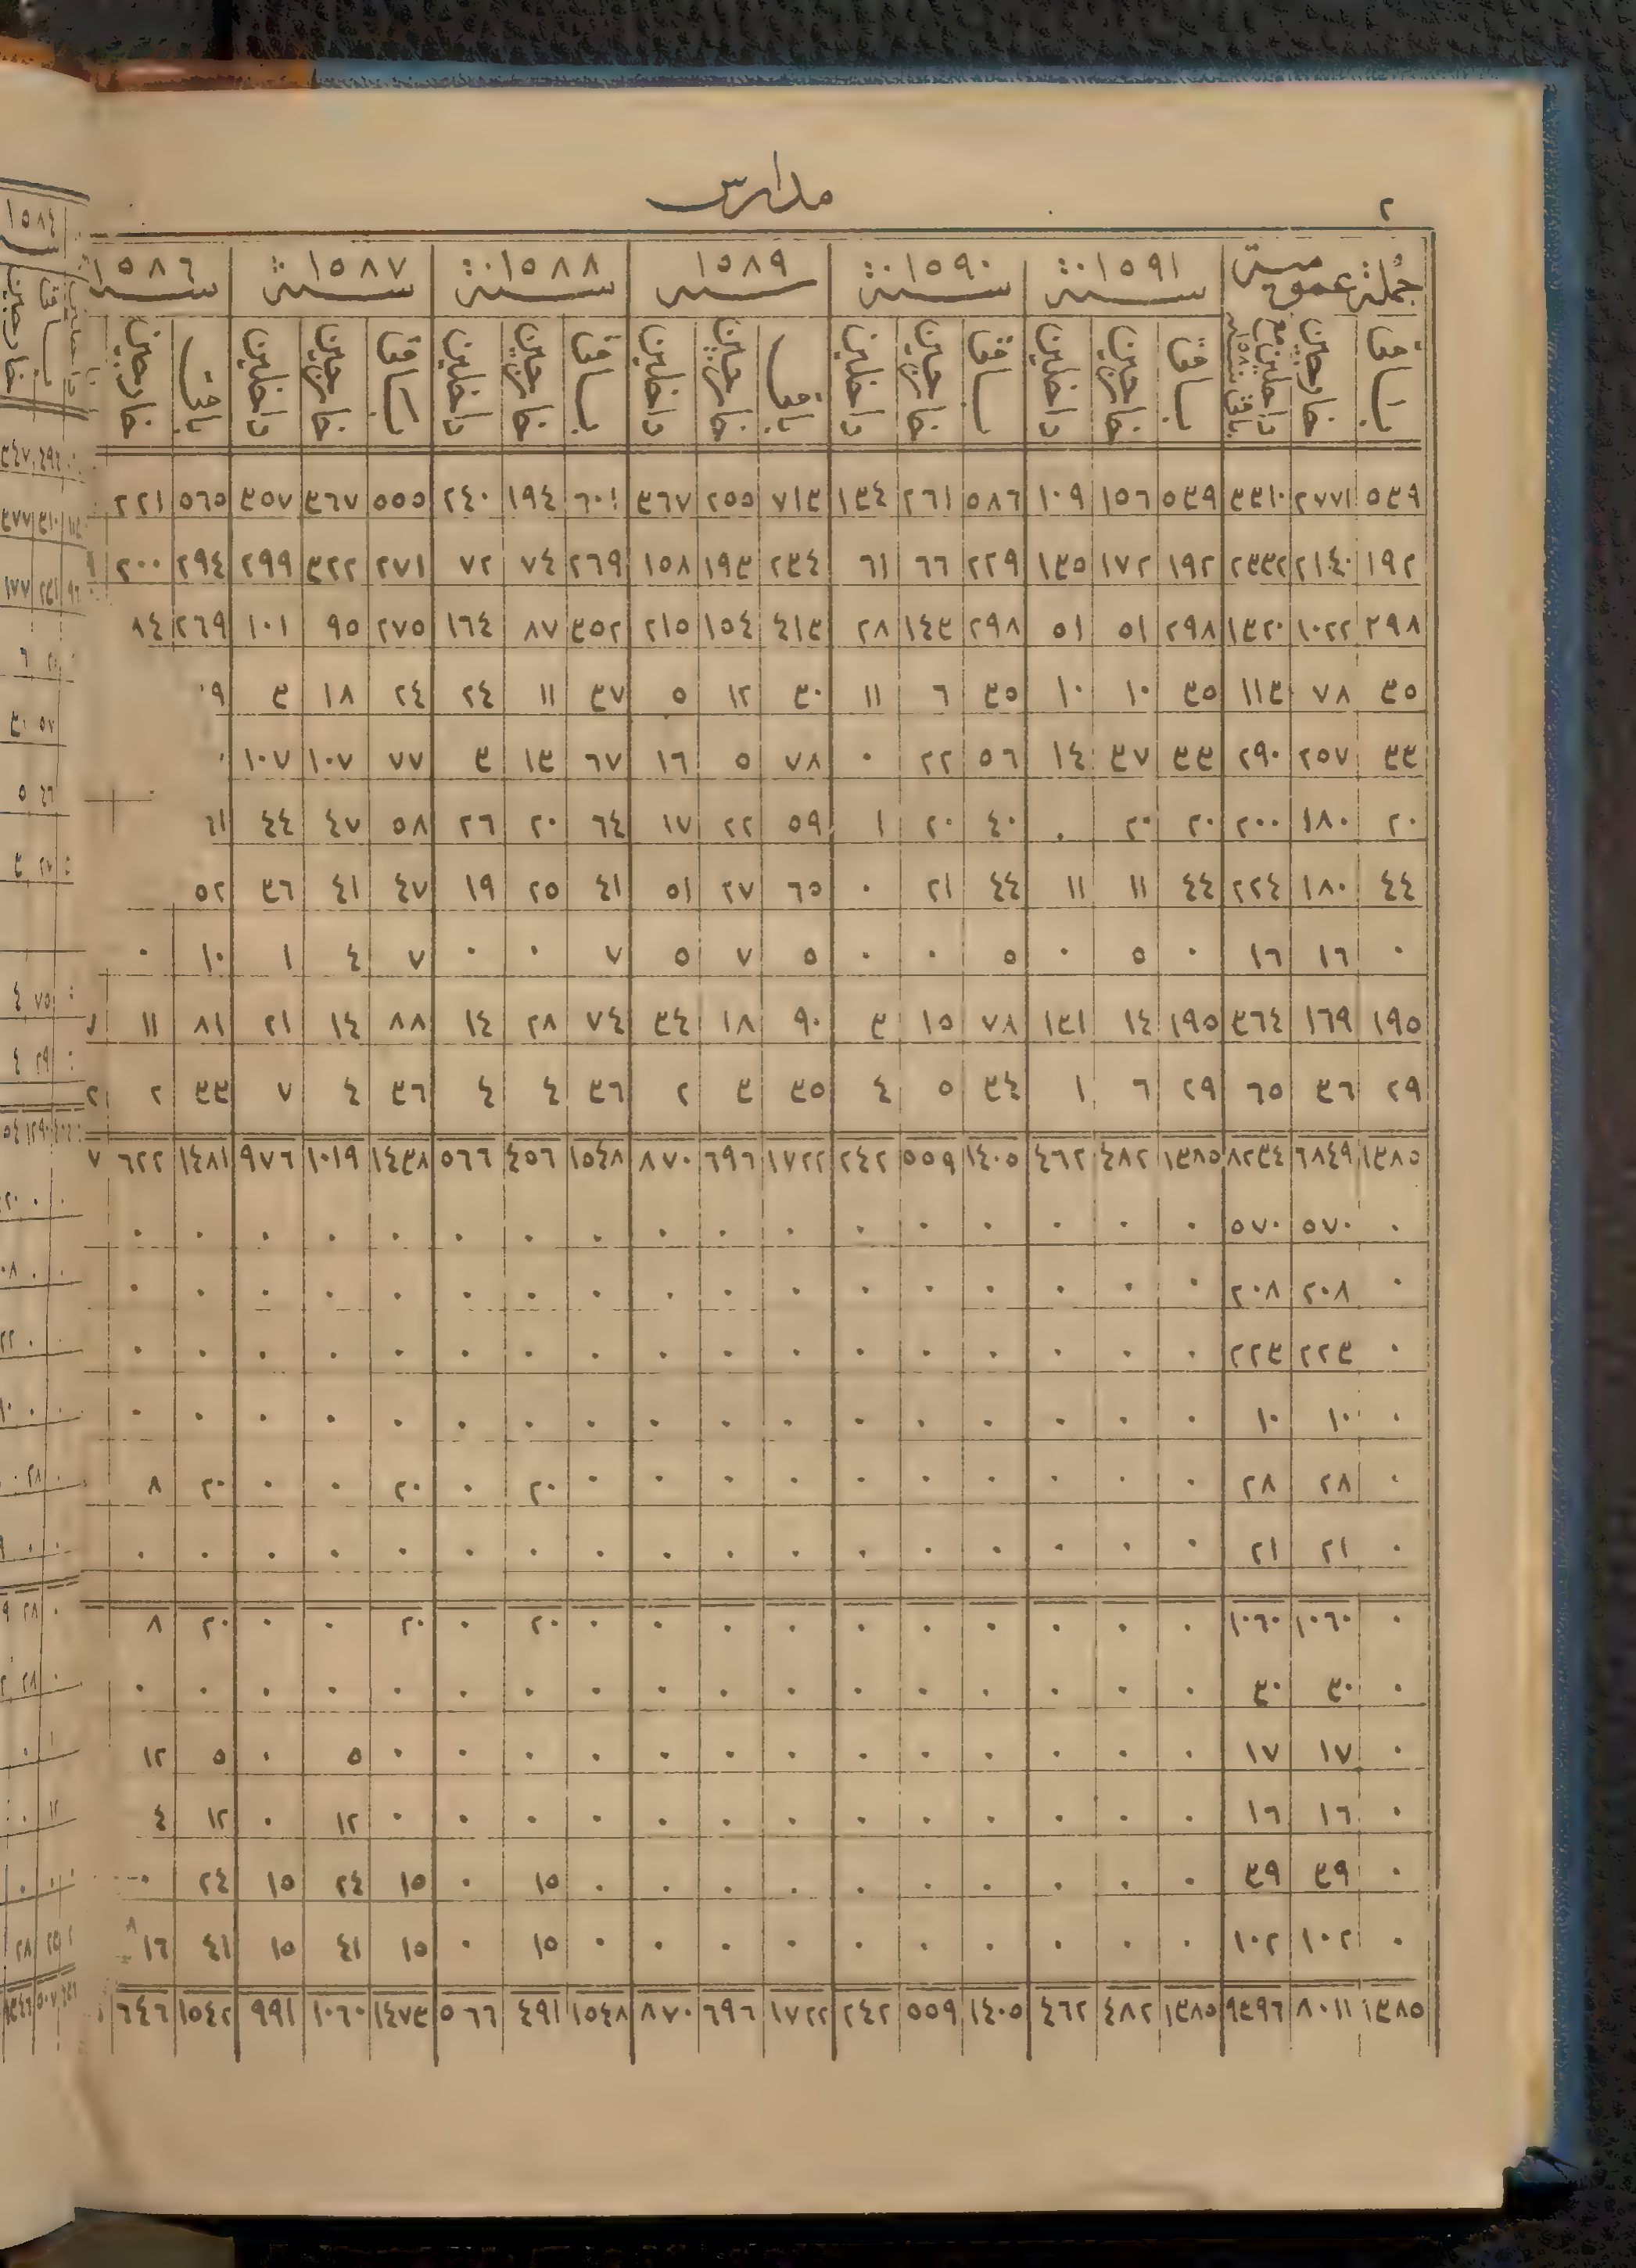 ٢
مدارس
جملة عمومية سنة ١٥٩١ سنة ١٥٩٠ سنة ١٥٨٩ سنة ١٥٨٨ سنة ١٥٨٧ سنة ١٥٨٦
باقى خارجين داخلين مع باقى باقى خارجين داخلين باقى خارجين داخلين باقى خارجين داخلين باقى خارجين داخلين باقى خارجين داخلين باقى خارجين
٥٣٩ ٢٧٧١ ٣٣١٠ ٥٣٩ ١٥٦ ١٠٩ ٥٨٦ ٢٦١ ١٣٤ ٧١٣ ٢٥٥ ٣٦٧ ٦٠١ ١٩٤ ٢٤٠ ٥٥٥ ٣٦٧ ٣٥٧ ٥٦٥ ٢٢١
١٩٢ ٢١٤٠ ٢٣٣٢ ١٩٢ ١٧٢ ١٣٥ ٢٢٩ ٦٦ ٦١ ٢٣٤ ١٩٣ ١٥٨ ٢٦٩ ٧٤ ٧٢ ٢٧١ ٣٢٢ ٢٩٩ ٢٩٤ ٢٠٠
٢٩٨ ١٠٢٢ ١٣٢٠ ٢٩٨ ٥١ ٥١ ٢٩٨ ١٤٣ ٢٨ ٤١٣ ١٥٤ ٢١٥ ٣٥٢ ٨٧ ١٦٤ ٢٧٥ ٩٥ ١٠١ ٢٦٩ ٨٤
٣٥ ٧٨ ١١٣ ٣٥ ١٠ ١٠ ٣٥ ٦ ١١ ٣٠ ١٢ ٥ ٣٧ ١١ ٢٤ ٢٤ ١٨ ٣
٣٣ ٢٥٧ ٢٩٠ ٣٣ ٣٧ ١٤ ٥٦ ٢٢ ٠ ٧٨ ٥ ١٦ ٦٧ ١٣ ٣ ٧٧ ١٠٧ ١٠٧
٢٠ ١٨٠ ٢٠٠ ٢٠ ٢٠ ٠ ٤٠ ٢٠ ١ ٥٩ ٢٢ ١٧ ٦٤ ٢٠ ٢٦ ٥٨ ٤٧ ٤٤ ٦١
٤٤ ١٨٠ ٢٢٤ ٤٤ ١١ ١١ ٤٤ ٢١ ٠ ٦٥ ٢٧ ٥١ ٤١ ٢٥ ١٩ ٤٧ ٤١ ٣٦ ٥٢
٠ ١٦ ١٦ ٠ ٥ ٠ ٥ ٠ ٠ ٥ ٧ ٥ ٧ ٠ ٠ ٧ ٤ ١ ١٠ ٠
١٩٥ ١٦٩ ٣٦٤ ١٩٥ ١٤ ١٣١ ٧٨ ١٥ ٣ ٩٠ ١٨ ٣٤ ٧٤ ٢٨ ١٤ ٨٨ ١٤ ٢١ ٨١ ١١
٢٩ ٣٦ ٦٥ ٢٩ ٦ ١ ٣٤ ٥ ٤ ٣٥ ٣ ٢ ٣٦ ٤ ٤ ٣٦ ٤ ٧ ٣٣ ٢
١٣٨٥ ٦٨٤٩ ٨٢٣٤ ١٣٨٥ ٤٨٢ ٤٦٢ ١٤٠٥ ٥٥٩ ٢٤٢ ١٧٢٢ ٦٩٦ ٨٧٠ ١٥٤٨ ٤٥٦ ٥٦٦ ١٤٣٨ ١٠١٩ ٩٧٦ ١٤٨١ ٦٢٢
٠ ٥٧٠ ٥٧٠ ٠ ٠ ٠ ٠ ٠ ٠ ٠ ٠ ٠ ٠ ٠ ٠ ٠ ٠ ٠ ٠ ٠
٠ ٢٠٨ ٢٠٨ ٠ ٠ ٠ ٠ ٠ ٠ ٠ ٠ ٠ ٠ ٠ ٠ ٠ ٠ ٠ ٠ ٠
٠ ٢٢٣ ٢٢٣ ٠ ٠ ٠ ٠ ٠ ٠ ٠ ٠ ٠ ٠ ٠ ٠ ٠ ٠ ٠ ٠ ٠
٠ ١٠ ١٠ ٠ ٠ ٠ ٠ ٠ ٠ ٠ ٠ ٠ ٠ ٠ ٠ ٠ ٠ ٠ ٠ ٠
٠ ٢٨ ٢٨ ٠ ٠ ٠ ٠ ٠ ٠ ٠ ٠ ٠ ٠ ٢٠ ٠ ٢٠ ٠ ٠ ٢٠ ٨
٠ ٢١ ٢١ ٠ ٠ ٠ ٠ ٠ ٠ ٠ ٠ ٠ ٠ ٠ ٠ ٠ ٠ ٠ ٠ ٠
٠ ١٠٦٠ ١٠٦٠ ٠ ٠ ٠ ٠ ٠ ٠ ٠ ٠ ٠ ٠ ٢٠ ٠ ٢٠ ٠ ٠ ٢٠ ٨
٠ ٣٠ ٣٠ ٠ ٠ ٠ ٠ ٠ ٠ ٠ ٠ ٠ ٠ ٠ ٠ ٠ ٠ ٠ ٠ ٠
٠ ١٧ ١٧ ٠ ٠ ٠ ٠ ٠ ٠ ٠ ٠ ٠ ٠ ٠ ٠ ٠ ٥ ٠ ٥ ١٢
٠ ١٦ ١٦ ٠ ٠ ٠ ٠ ٠ ٠ ٠ ٠ ٠ ٠ ٠ ٠ ٠ ١٢ ٠ ١٢ ٤
٠ ٣٩ ٣٩ ٠ ٠ ٠ ٠ ٠ ٠ ٠ ٠ ٠ ٠ ١٥ ٠ ١٥ ٢٤ ١٥ ٢٤ ٠
٠ ١٠٢ ١٠٢ ٠ ٠ ٠ ٠ ٠ ٠ ٠ ٠ ٠ ٠ ١٥ ٠ ١٥ ٤١ ١٥ ٤١ ١٦
١٣٨٥ ٨٠١١ ٩٣٩٦ ١٣٨٥ ٤٨٢ ٤٦٢ ١٤٠٥ ٥٥٩ ٢٤٢ ١٧٢٢ ٦٩٦ ٨٧٠ ١٥٤٨ ٤٩١ ٥٦٦ ١٤٧٣ ١٠٦٠ ٩٩١ ١٥٤٢ ٦٤٦